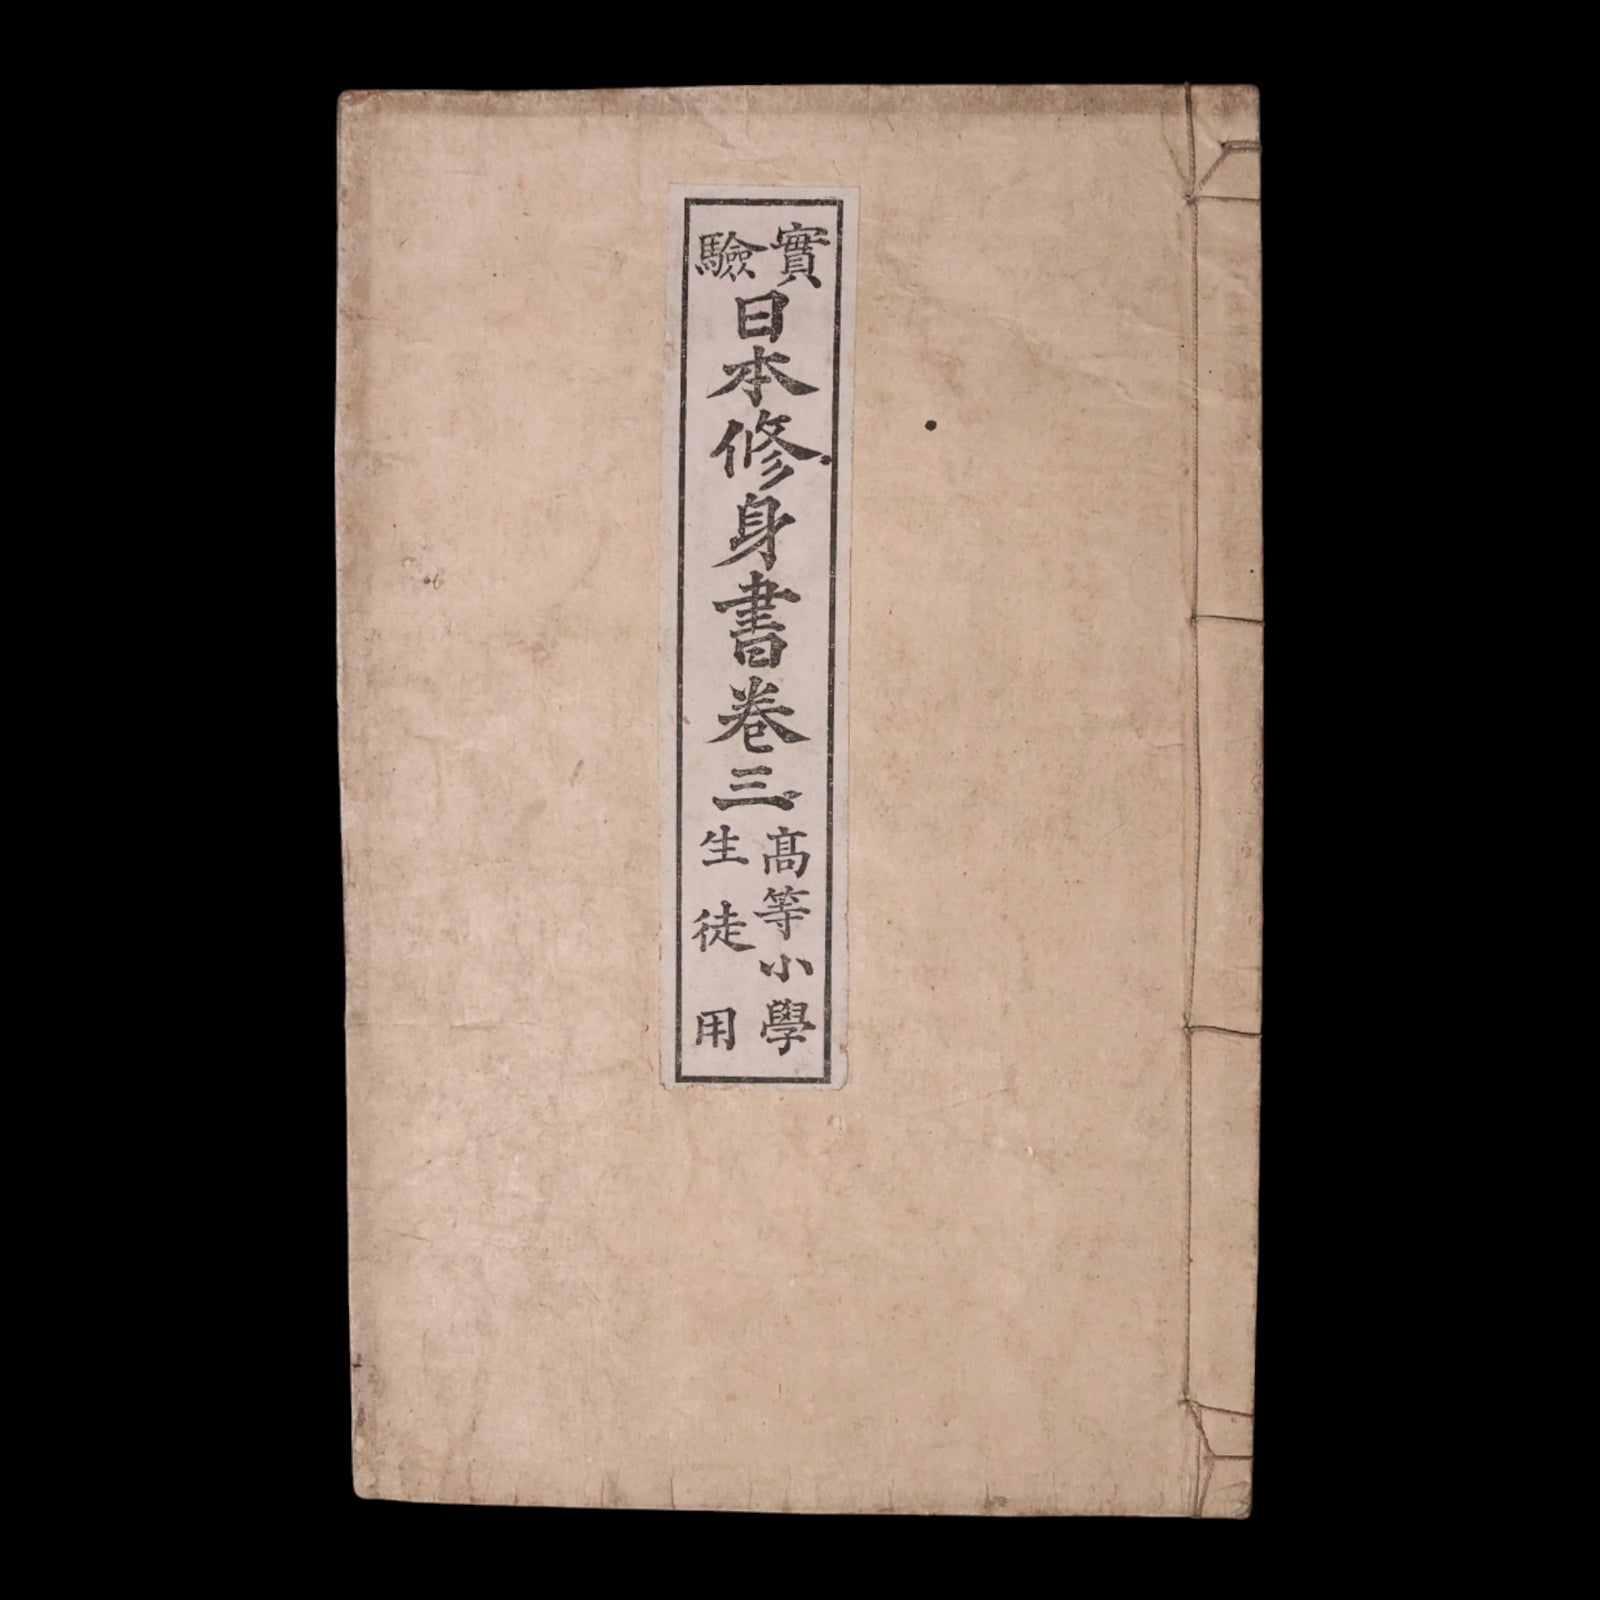 實驗
日本修身書卷三
高等小學
生徒用